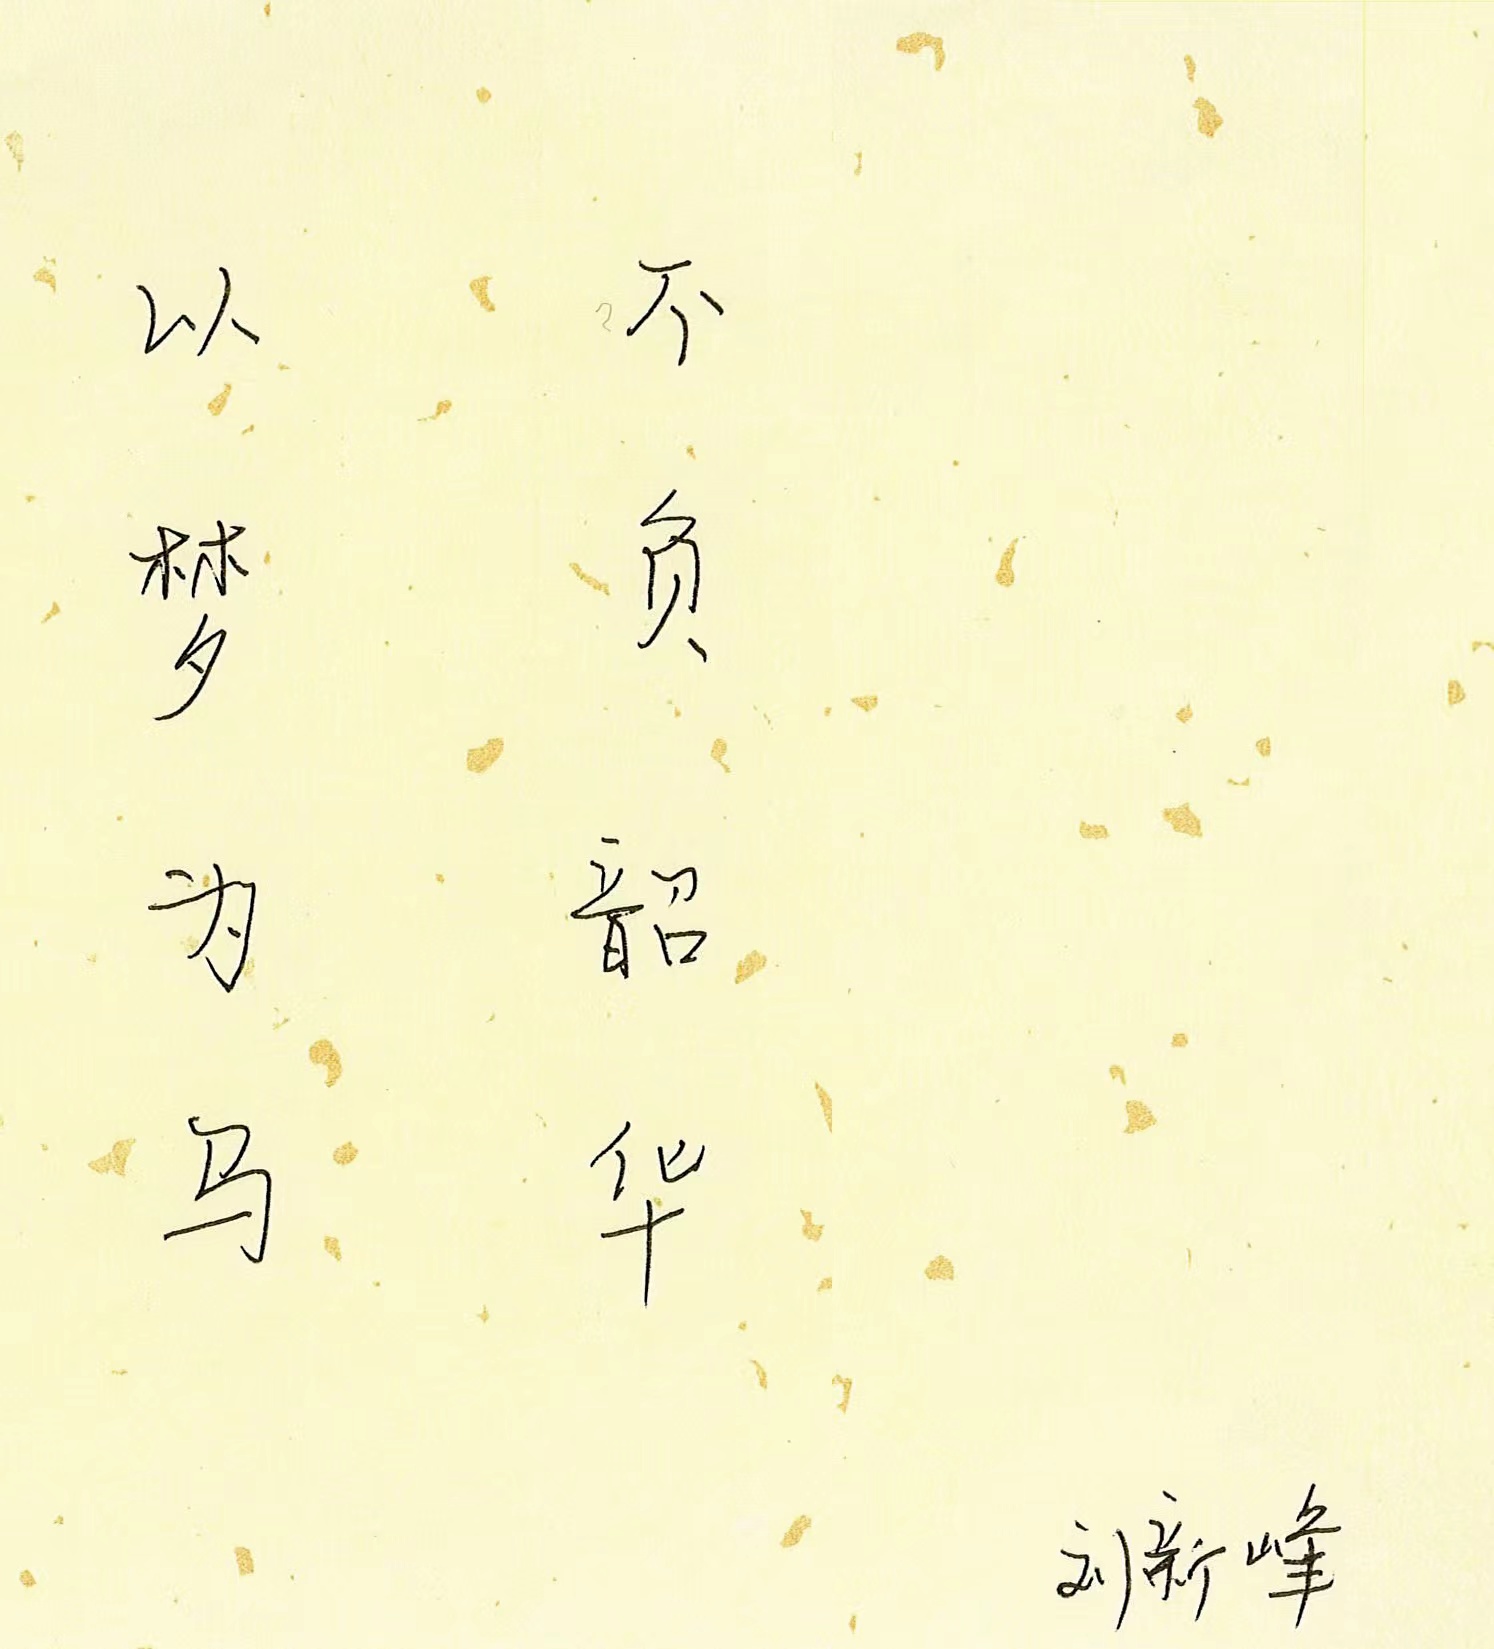 以梦为马
不负韶华
刘新峰